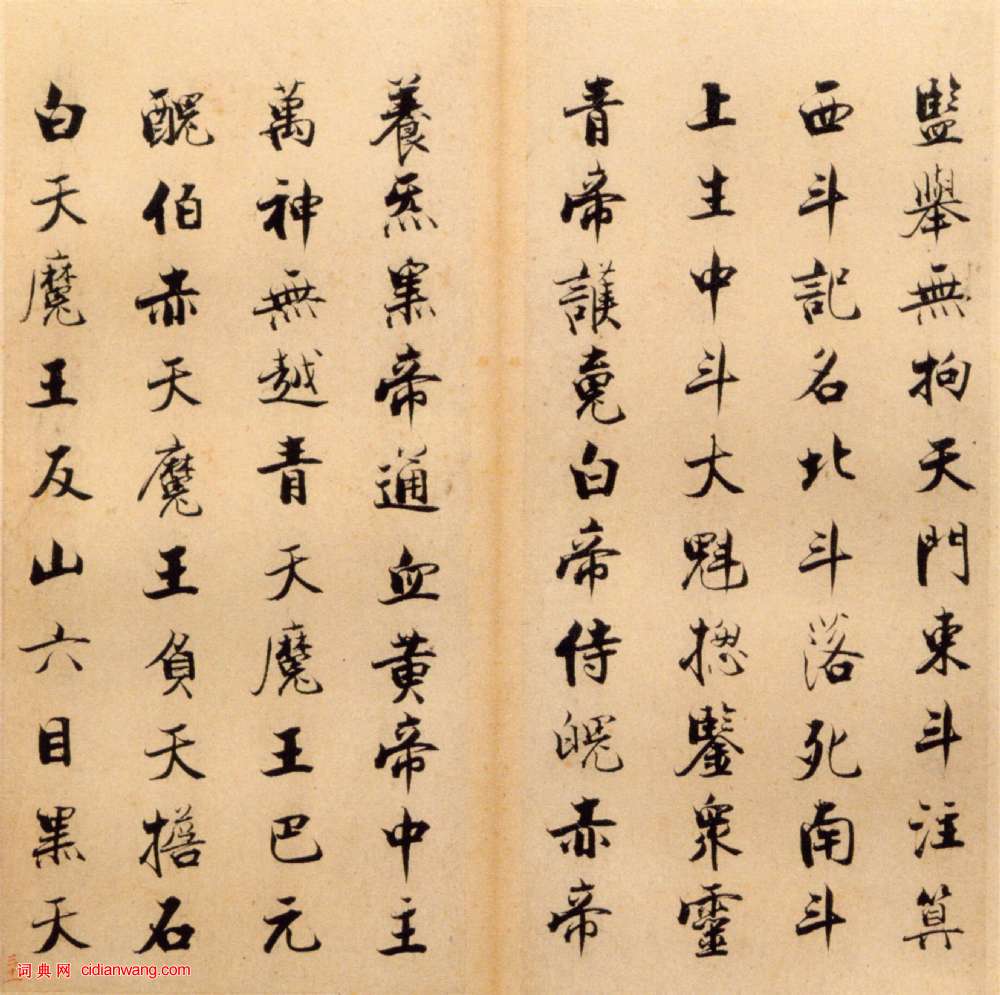 監舉無拘天門東斗注算
西斗記名北斗落死南斗
上生中斗大魁摠鑒衆靈
青帝護魂白帝侍魄赤帝
養炁黑帝通血黄帝中主
萬神無越青天魔王巴元
醜伯赤天魔王負天擔石
白天魔王反山六目黑天
词典网 cidianwang.com